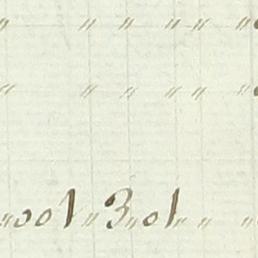 " " " " " "
" " " " " "
"001 " 3 " 01 " " "